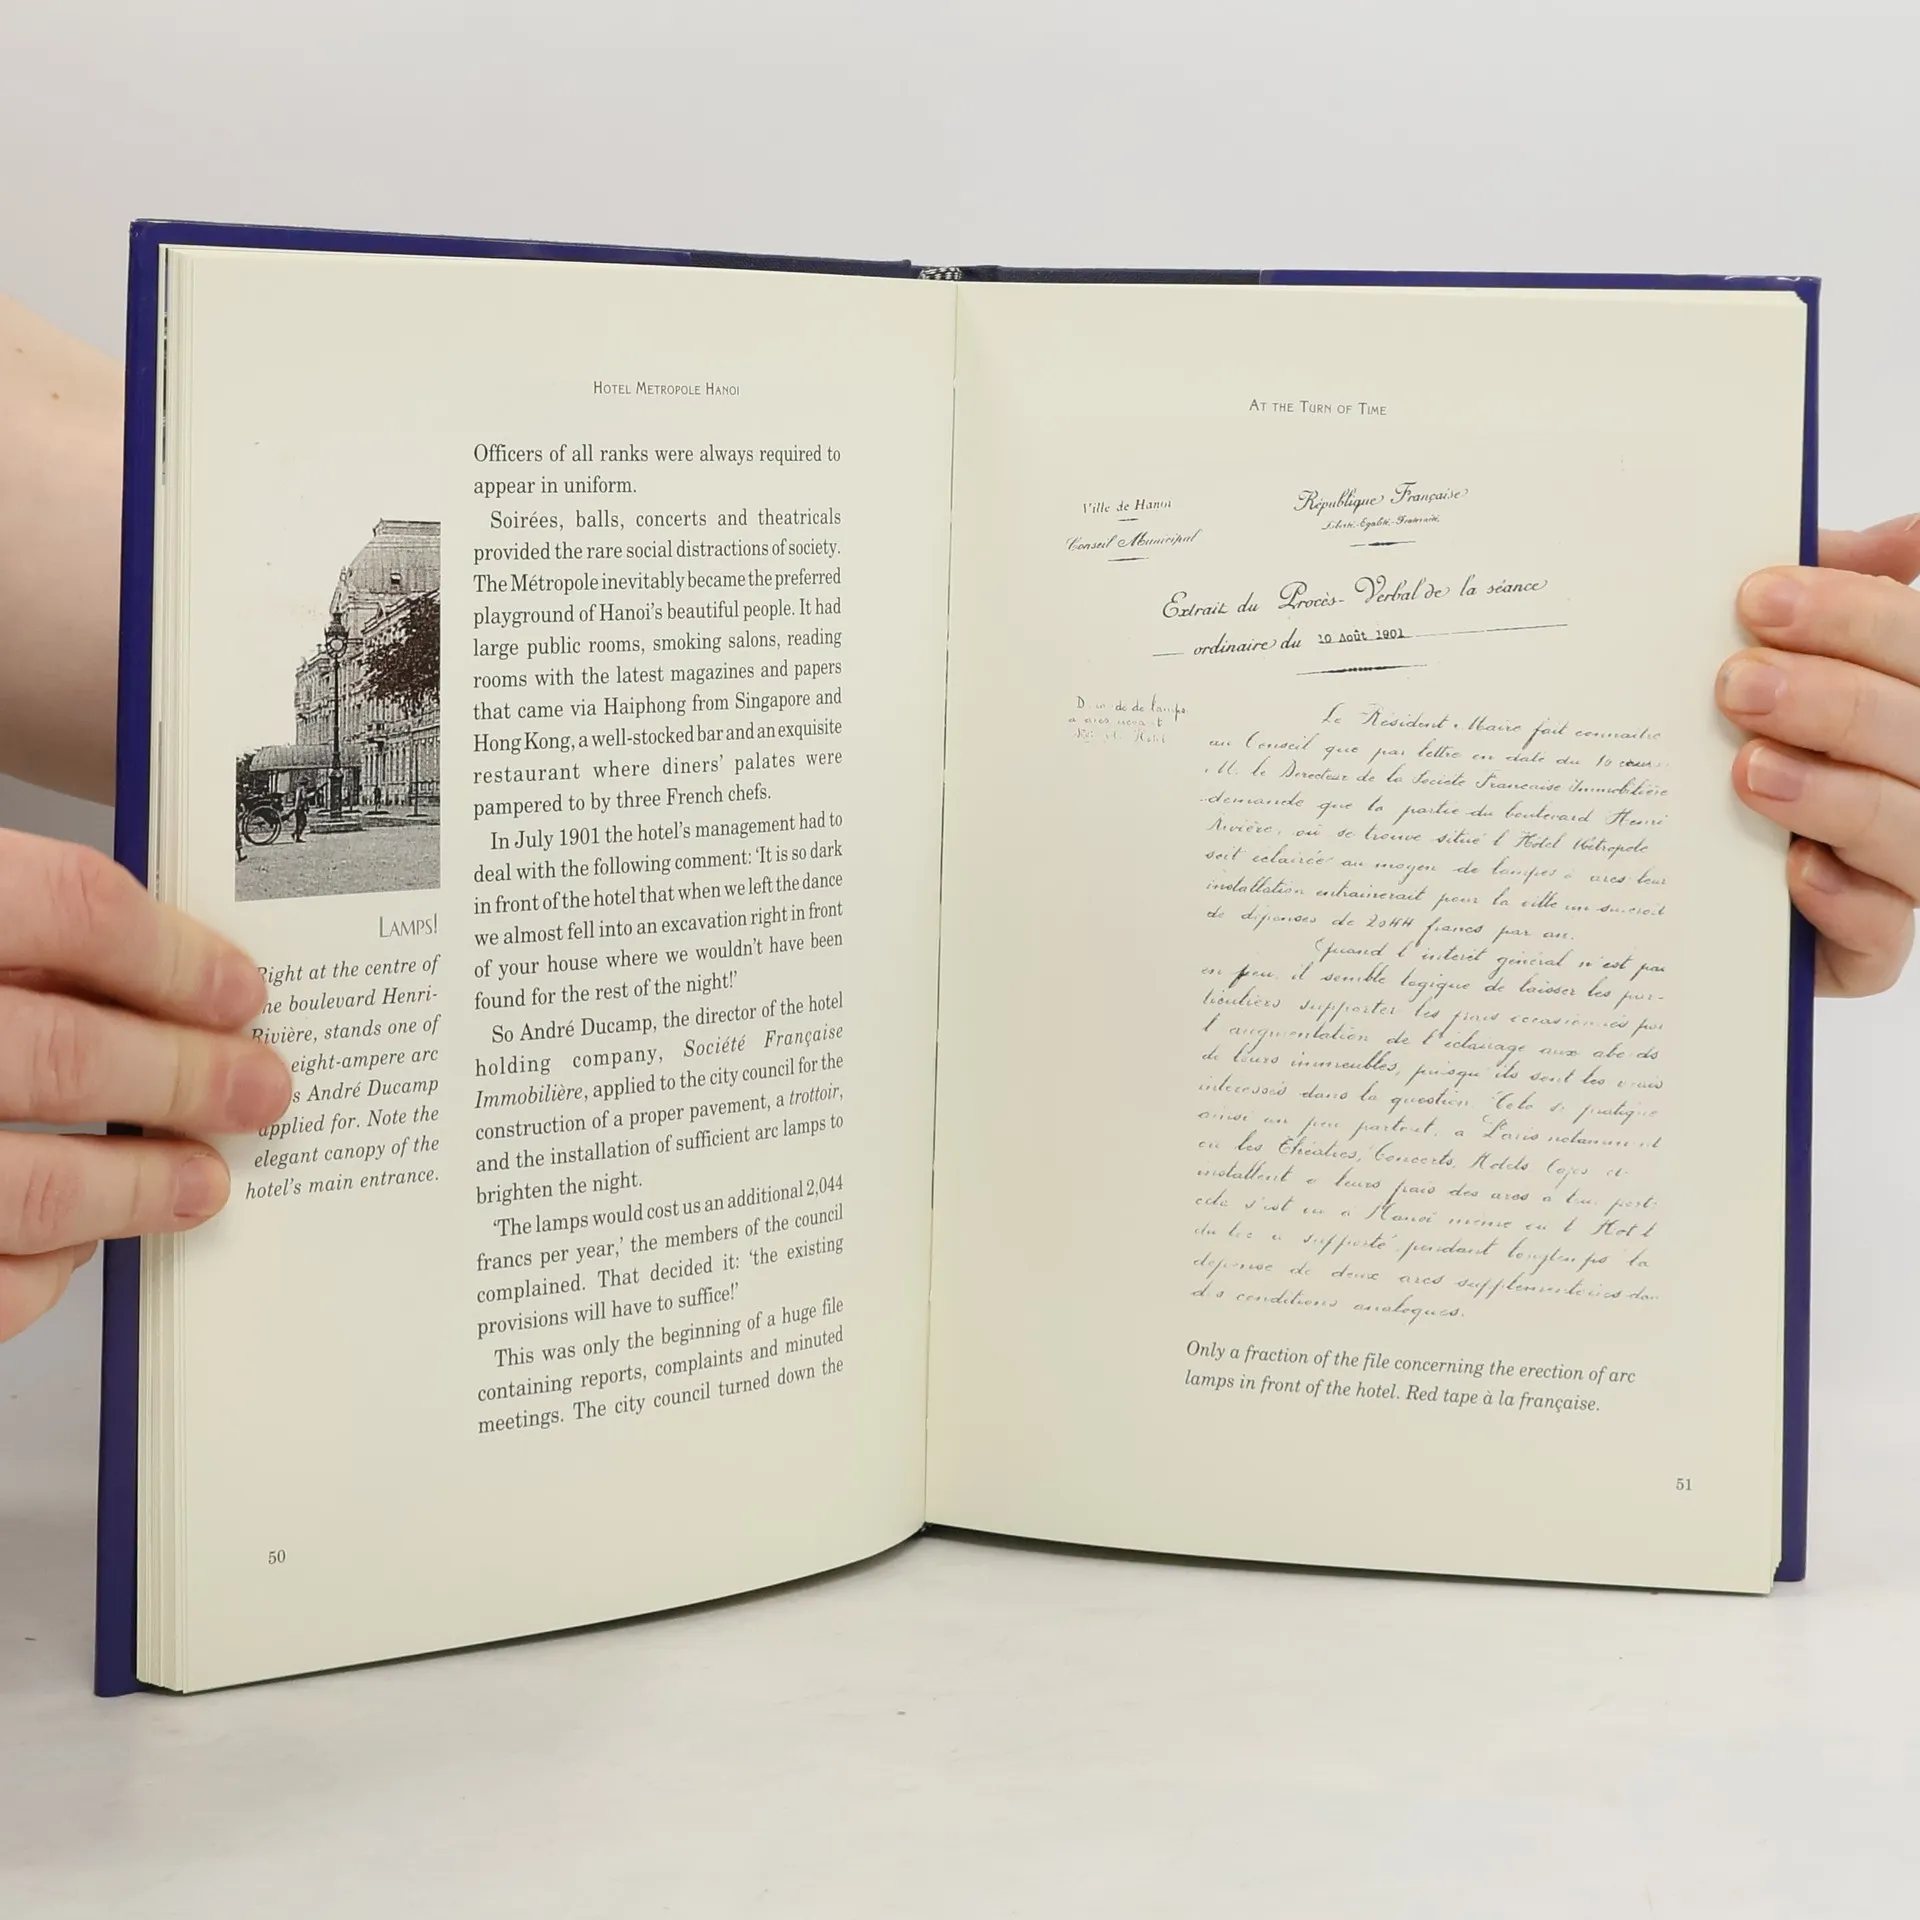 HOTEL METROPOLE HANOI
LAMPS!
Right at the centre of
the boulevard Henri-
Rivière, stands one of
eight-ampere arc
André Ducamp
applied for. Note the
elegant canopy of the
hotel's main entrance.
Officers of all ranks were always required to
appear in uniform.
Soirées, balls, concerts and theatricals
provided the rare social distractions of society.
The Métropole inevitably became the preferred
playground of Hanoi's beautiful people. It had
large public rooms, smoking salons, reading
rooms with the latest magazines and papers
that came via Haiphong from Singapore and
Hong Kong, a well-stocked bar and an exquisite
restaurant where diners' palates were
pampered to by three French chefs.
In July 1901 the hotel's management had to
deal with the following comment: 'It is so dark
in front of the hotel that when we left the dance
we almost fell into an excavation right in front
of your house where we wouldn't have been
found for the rest of the night!'
So André Ducamp, the director of the hotel
holding company, Société Française
Immobilière, applied to the city council for the
construction of a proper pavement, a trottoir,
and the installation of sufficient arc lamps to
brighten the night.
'The lamps would cost us an additional 2,044
francs per year,' the members of the council
complained. That decided it: 'the existing
provisions will have to suffice!'
This was only the beginning of a huge file
containing reports, complaints and minuted
meetings. The city council turned down the
50
AT THE TURN OF TIME
Ville de Hanoi
Conseil Municipal
République Française
Liberté-Egalité-Fraternité
Extrait du Procès-Verbal de la séance
ordinaire du 10 Août 1901
de lamps
Le Résident Maire fait connaitre
au Conseil que par lettre en date du 10
M. le Directeur de la Societe Francaise Immobilière
demande que la partie du boulevard Henri
Rivière, où se trouve situé l Hôtel Métropole
soit éclairée au moyen de lampes à arcs leur
installation entrainerait pour la ville un surcroit
de dépenses de 2044 francs par an.
Quand l'interêt général n'est pas
en jeu, il semble logique de laisser les par-
ticuliers supporter les frais occasionnés par
l'augmentation de l'éclairage aux abords
de leurs immeubles, puisqu'ils sont les vrais
interessés dans la question. Cela se pratique
ainsi un peu partout, a Paris notamment
où les Théatres, Concerts, Hotels Cafés
installent a leurs frais des arcs a leur porte
cela s'est vu à Hanoi même où l Hotel
du Lac a supporté pendant longtemps la
dépense de deux arcs supplementaires dans
des conditions analogues.
Only a fraction of the file concerning the erection of arc
lamps in front of the hotel. Red tape à la française.
51